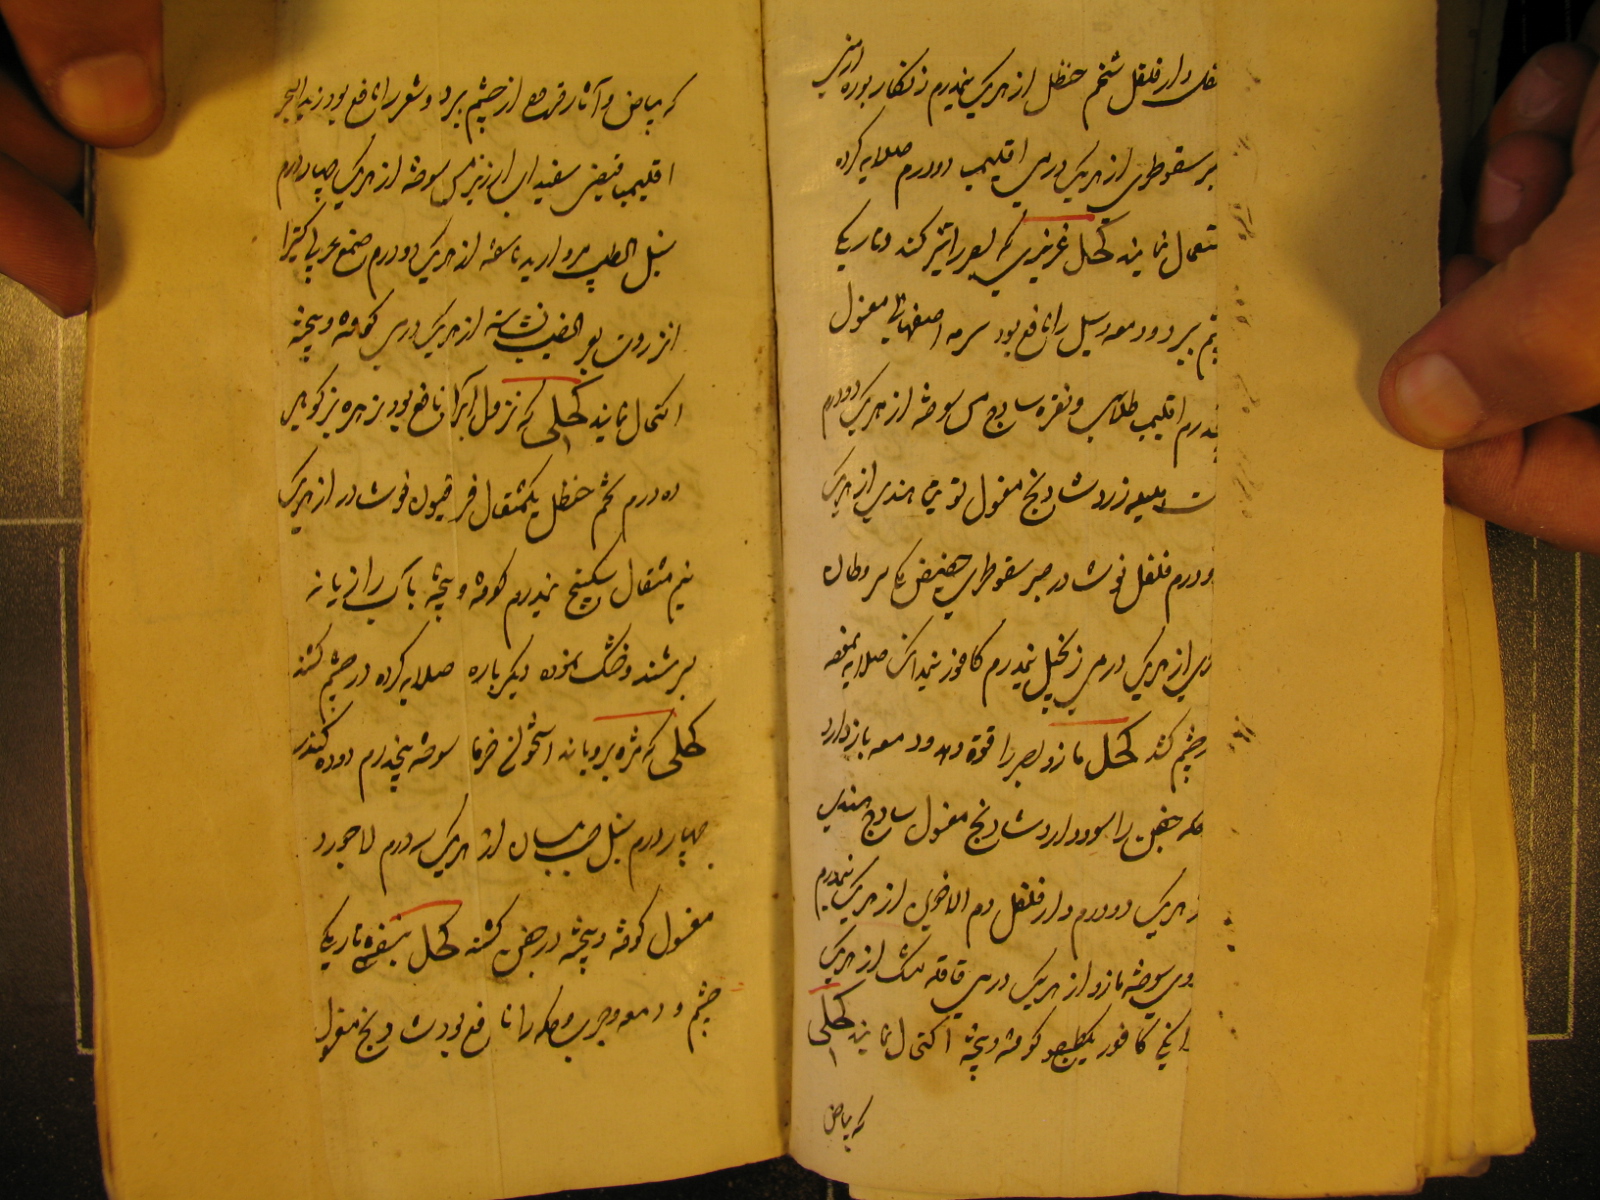 فلفل دارفلفل شحم حنظل از هریک نیمدرم زنکار بوره ارمنی
صبر سقوطری از هریک درمی اقلیمیا دودرم صلایه کرده
استعمال نمایند کحل عزیزی که بصر را تیز کند و تاریکی
چشم ببرد و دمعه و سبل را نافع بود سرمه اصفهانی مغسول
درم اقلیمیا طلای و نقره ساذج مس سوخته از هریک دودرم
هلیله زرد شادنج مغسول توتیا هندی از هریک
دودرم فلفل نوشادر صبر سقوطری حضیض مکی سرطان
از هریک درمی زنجبیل نیمدرم کافور نیمدانک صلایه نموده
در چشم کنند کحل مازو بصر را قوة دهد و دمعه باز دارد
حکه جفن را سود دارد شادنج مغسول ساذج هندی
از هریک دودرم دارفلفل دم الاخوین از هریک نیمدرم
سوخته مازو از هریک درمی قاقله مشک از هریک
دانکی کافور یکطسوج کوفته و بیخته اکتحال نمایند کحلی
که بیاض
که بیاض و آثار قرحه از چشم ببرد و شعر را نافع بود زبد البحر
اقلیمیا فیضی سفیداب ارزیز مس سوخته از هریک چهاردرم
سنبل الطیب مروارید ناسفته از هریک دودرم صمغ عربی کتیرا
انزروت بعر الضب نشاسته از هریک درمی کوفته و بیخته
اکتحال نمایند کحلی که نزول آب را نافع بود زهره بز کوهی
ده درم شحم حنظل یکمثقال فرفیون نوشادر از هریک
نیم مثقال سکبینج نیمدرم کوفته و بیخته بآب رازیانه
بسرشند و خشک نموده دیکرباره صلایه کرده در چشم کشند
کحلی که مژه برویاند استخوان خرما سوخته پنجدرم دوده کندر
چهاردرم سنبل حب بلسان از هریک سه درم لاجورد
مغسول کوفته و بیخته در جفن کشند کحل بنفسجی تاریکی
چشم و دمعه و جرب و حکه را نافع بود شادنج مغسول